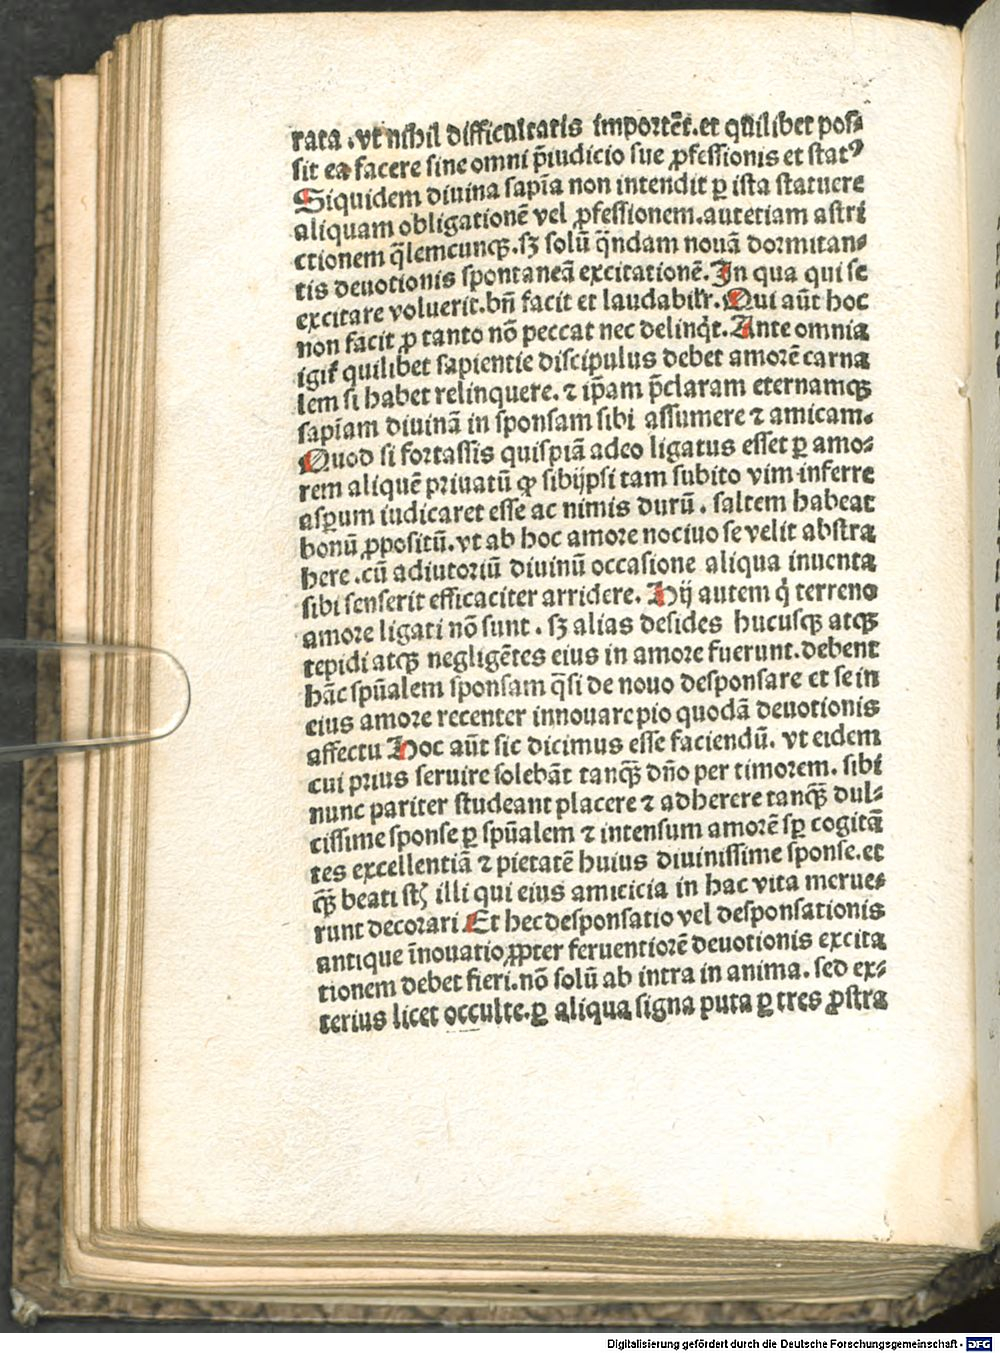 rata .vt nihil difficultatis importēt.et qͥlibet pos⸗
sit ea facere sine omni p̄iudicio sue ꝓfessionis et statꝰ
Siquidem diuina sapīa non intendit ꝑ ista statuere
aliquam obligationē vel ꝓfessionem.aut etiam astri
ctionem q̄lemcunqꝫ.sꝫ solū q̄ndam nouā dormitan⸗
tis deuotionis spontaneā excitationē.In qua qui se
excitare voluerit.bn̄ facit et laudabilr̄.Qui aūt hoc
non facit ꝓ tanto nō peccat nec delinqͥt.Ante omnia
igit̄ quilibet sapientie discipulus debet amorē carna
lem si habet relinquere.⁊ ip̄am p̄claram eternamqꝫ
sapīam diuinā in sponsam sibi assumere ⁊ amicam.
Quod si fortassis quispiā adeo ligatus esset ꝑ amo⸗
rem aliquē priuatū ꝙ sibijpsi tam subito vim inferre
asꝑum iudicaret esse ac nimis durū. saltem habeat
bonū ꝓpositū.vt ab hoc amore nociuo se velit abstra
here.cū adiutoriū diuinū occasione aliqua inuenta
sibi senserit efficaciter arridere. Hij autem qͥ terreno
amore ligati nō sunt. sꝫ alias desides hucusqꝫ atqꝫ
tepidi atqꝫ negligētes eius in amore fuerunt.debent
hāc spūalem sponsam q̄si de nouo desponsare et se in
eius amore recenter innouare pio quodā deuotionis
affectu Hoc aūt sic dicimus esse faciendū. vt eidem
cui prius seruire solebāt tanqꝫ̄ dn̄o per timorem. sibi
nunc pariter studeant placere ⁊ adherere tanqꝫ̄ dul⸗
cissime sponse ꝑ spūalem ⁊ intensum amorē sꝑ cogitā
tes excellentiā ⁊ pietatē huius diuinissime sponse.et
qꝫ̄ beati st̄ illi qui eius amicicia in hac vita merue⸗
runt decorari.Et hec desponsatio vel desponsationis
antique īnouatio ꝓpter feruentiorē deuotionis excita
tionem debet fieri.nō solū ab intra in anima. sed ex⸗
terius licet occulte.ꝑ aliqua signa puta ꝑ tres ꝓstra
Digitalisierung gefördert durch die Deutsche Forschungsgemeinschaft - DFG